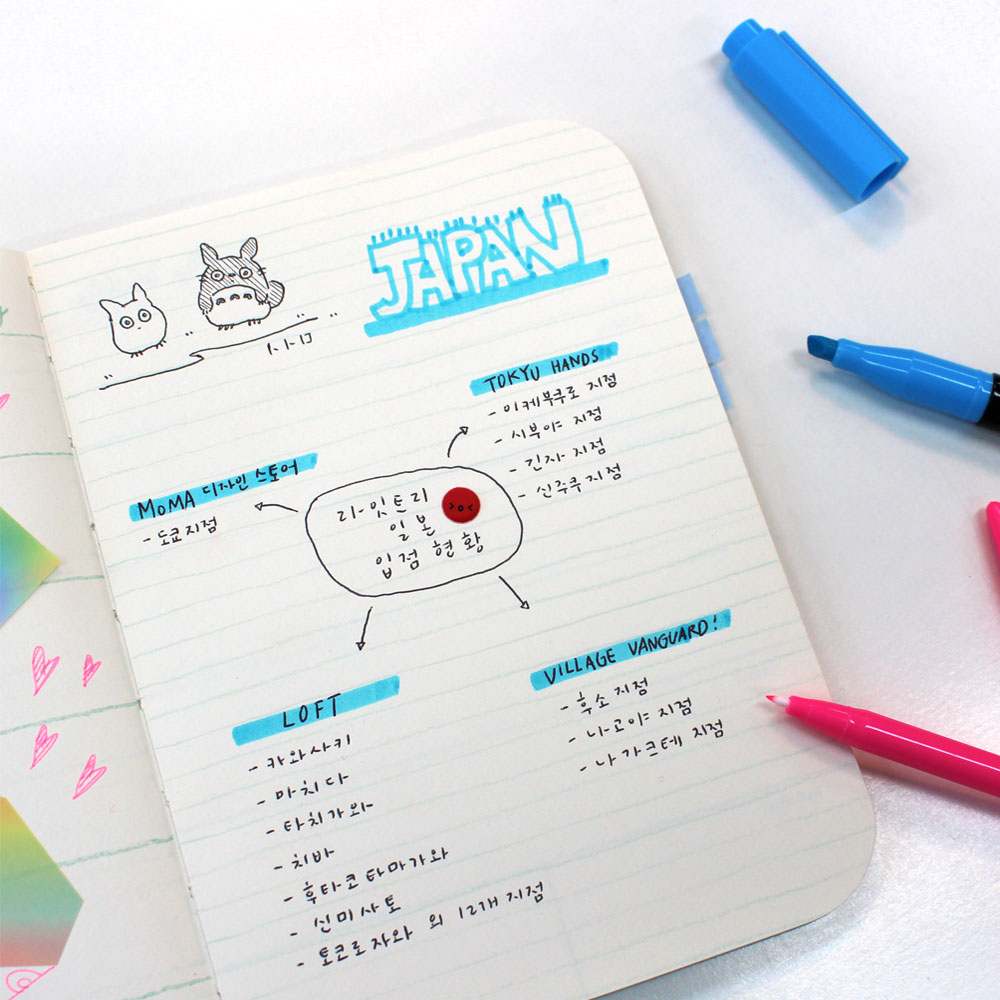 JAPAN
TOKYU HANDS
- 이케부쿠로 지점
- 시부야 지점
- 긴자 지점
- 신주쿠 지점
MoMA 디자인 스토어
- 도쿄지점
리-잇트리
일본
입점 현황
VILLAGE VANGUARD!
- 후소 지점
- 나고야 지점
- 나가쿠테 지점
LOFT
- 카와사키
- 마치다
- 타치가와
- 치바
- 후타코타마가와
- 신미사토
- 토코로자와 외 12개 지점